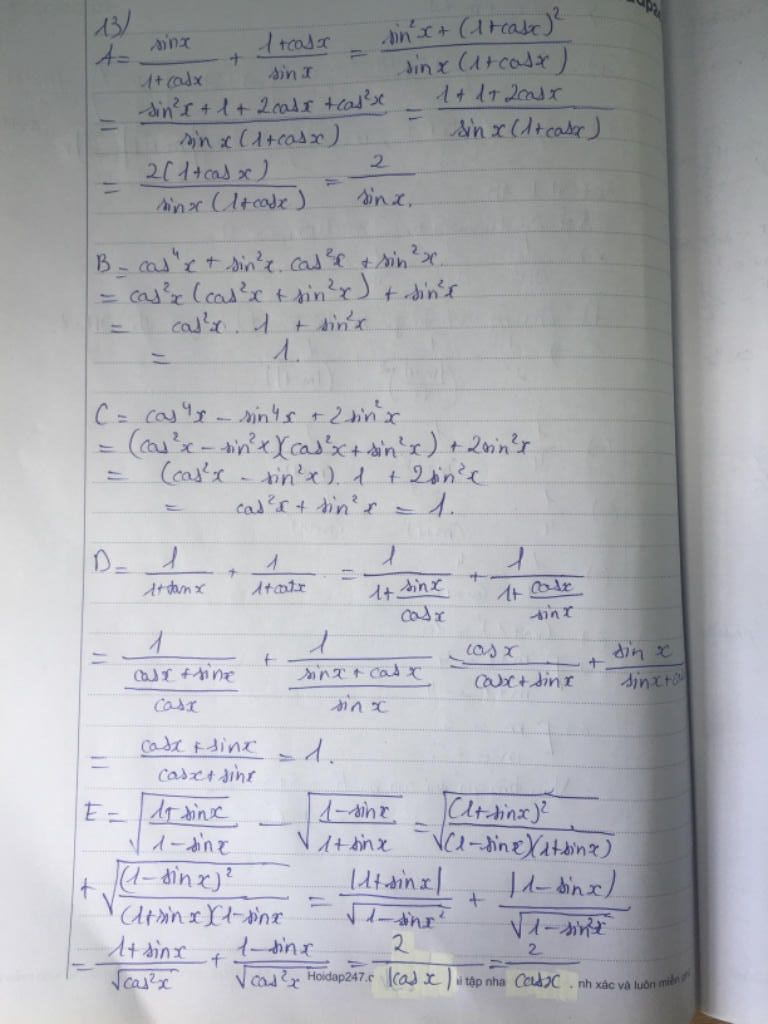 13)
A = sinx/(1+cosx) + (1+cosx)/sinx = (sin²x + (1+cosx)²)/(sinx(1+cosx))
= (sin²x + 1 + 2cosx + cos²x)/(sinx(1+cosx)) = (1 + 1 + 2cosx)/(sinx(1+cosx))
= 2(1+cosx)/(sinx(1+cosx)) = 2/sinx.
B = cos⁴x + sin²x.cos²x + sin²x
= cos²x(cos²x + sin²x) + sin²x
= cos²x . 1 + sin²x
= 1.
C = cos⁴x - sin⁴x + 2sin²x
= (cos²x - sin²x)(cos²x + sin²x) + 2sin²x
= (cos²x - sin²x). 1 + 2sin²x
= cos²x + sin²x = 1.
D = 1/(1+tanx) + 1/(1+cotx) = 1/(1+sinx/cosx) + 1/(1+cosx/sinx)
= 1/((cosx+sinx)/cosx) + 1/((sinx+cosx)/sinx) = cosx/(cosx+sinx) + sinx/(sinx+co
= (cosx+sinx)/(cosx+sinx) = 1.
E = √((1+sinx)/(1-sinx)) - √((1-sinx)/(1+sinx)) = √((1+sinx)²/((1-sinx)(1+sinx)))
+ √((1-sinx)²/((1+sinx)(1-sinx)) = |1+sinx|/√(1-sinx²) + |1-sinx)/√(1-sin²x)
= (1+sinx)/√(cos²x) + (1-sinx)/√(cos²x) = 2/|cosx| = 2/cosx.
Hoidap247.c ài tập nha nh xác và luôn miễn phí